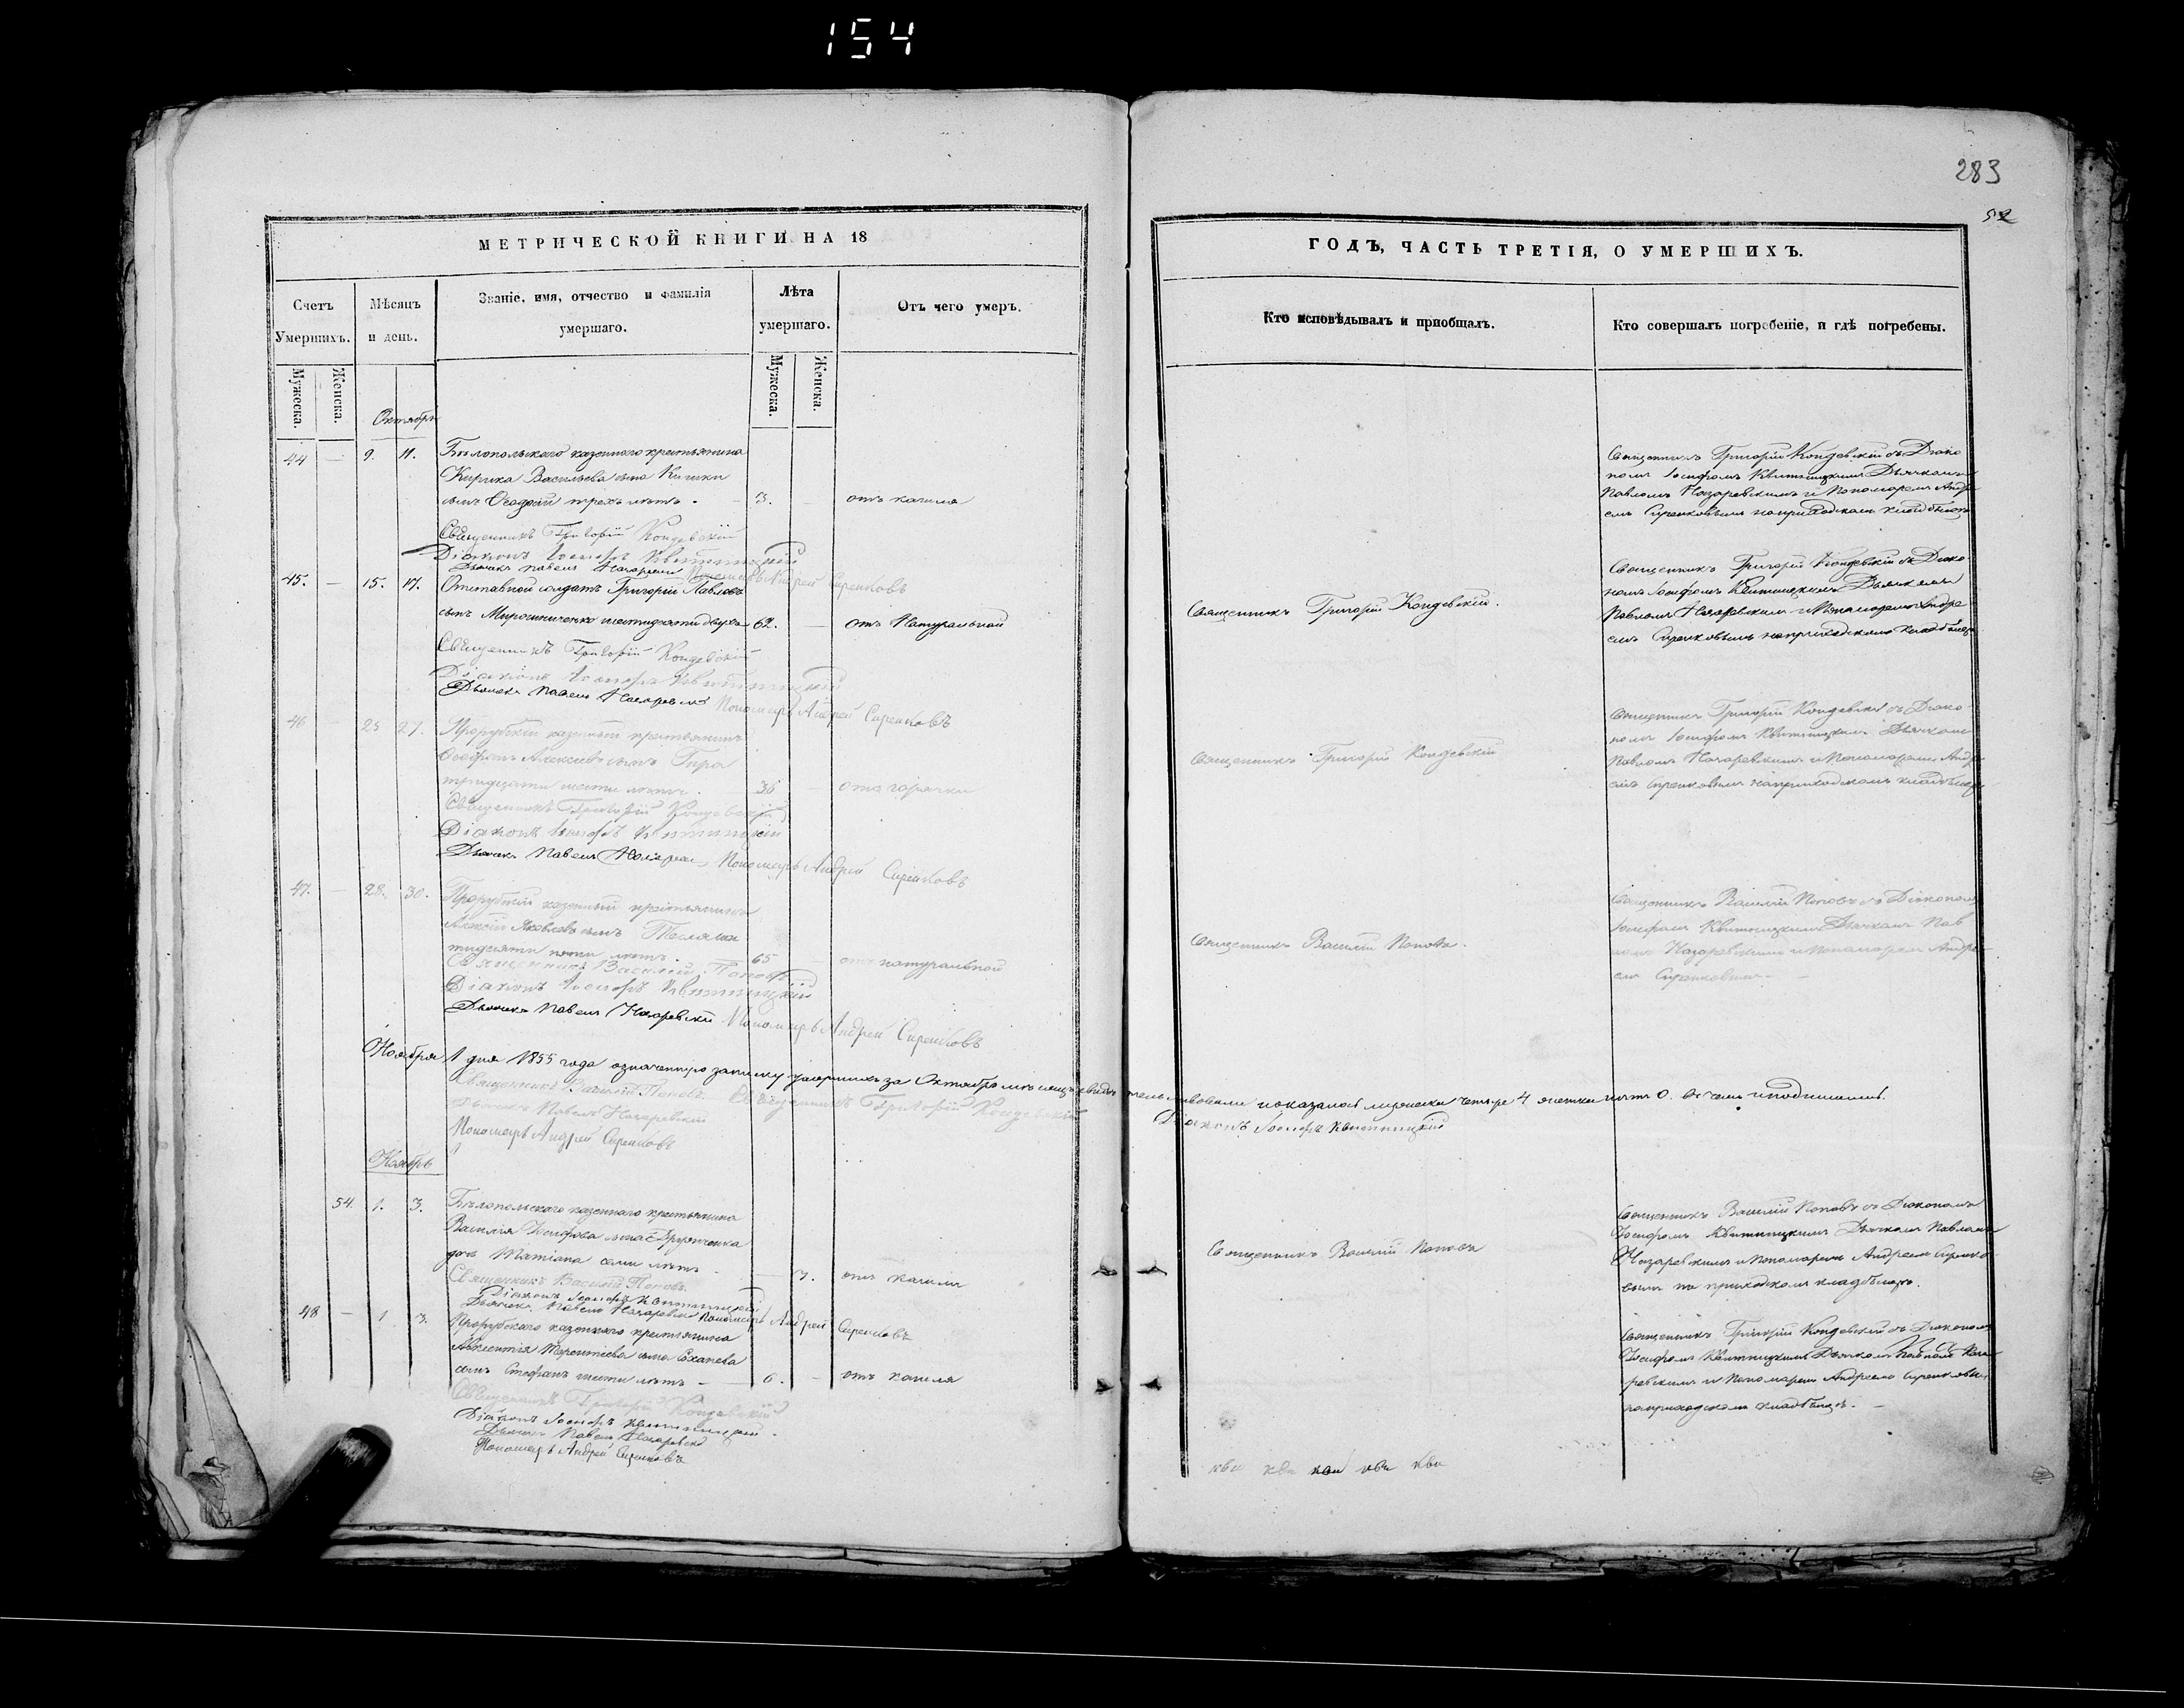 154
283
52
МЕТРИЧЕСКОЙ КНИГИ НА 18
ГОДЪ, ЧАСТЬ ТРЕТІЯ, О УМЕРШИХЪ.
Счетъ Умершихъ.
Мѣсяцъ и день.
Званіе, имя, отчество и фамилія умершаго.
Лѣта умершаго.
Отъ чего умеръ.
Кто исповѣдывалъ и приобщалъ.
Кто совершалъ погребеніе, и гдѣ погребены.
Мужеска.
Женска.
Мужеска.
Женска.
Октябрь
44 — 9. 11. Бѣлопольскаго казеннаго крестьянина
Кирика Васильева сына
сынъ трехъ лѣтъ. — 3. — отъ кашля
Священникъ Григорій Кондевскій съ Діако
номъ Іосифомъ Квитницкимъ Дьячкомъ
Павломъ Назаревскимъ и Пономаремъ Андре
емъ Сиренковымъ на приходскомъ кладбищѣ
Священникъ Григорій Кондевскій
Діаконъ Іосифъ Квитницкій
Дьячекъ Павелъ Назаревскій Пономарь Андрей Сиренковъ
45. — 15. 17. Отставной солдатъ Григорій Павловъ
сынъ Мирошниченко шестидесяти двухъ 62. — отъ Натуральной
Священникъ Григорій Кондевскій.
Священникъ Григорій Кондевскій съ Діако
номъ Іосифомъ Квитницкимъ Дьячкомъ
Павломъ Назаревскимъ и Пономаремъ Андре
емъ Сиренковымъ на приходскомъ кладбищѣ
Священникъ Григорій Кондевскій
Діаконъ Іосифъ Квитницкій
Дьячекъ Павелъ Назаревскій Пономарь Андрей Сиренковъ
46 — 25 27. Прорубскій казенный крестьянинъ
Алексѣевъ сынъ Гира
тридцати шести лѣтъ. — 36 — отъ горячки
Священникъ Григорій Кондевскій
Священникъ Григорій Кондевскій съ Діако
номъ Іосифомъ Квитницкимъ Дьячкомъ
Павломъ Назаревскимъ и Пономаремъ Андре
емъ Сиренковымъ на приходскомъ кладбищѣ
Священникъ Григорій Кондевскій
Діаконъ Іосифъ Квитницкій
Дьячекъ Павелъ Назаревскій Пономарь Андрей Сиренковъ
47. — 28. 30. Прорубскій казенный крестьянинъ
Яковлевъ сынъ
тидесяти пяти лѣтъ. — 65 — отъ натуральной
Священникъ Василій Поповъ.
Священникъ Василій Поповъ съ Діакономъ
Іосифомъ Квитницкимъ Дьячкомъ Пав
ломъ Назаревскимъ и Пономаремъ Андре
емъ Сиренковымъ. —
Священникъ Василій Поповъ
Діаконъ Іосифъ Квитницкій
Дьячекъ Павелъ Назаревскій Пономарь Андрей Сиренковъ
Ноября 1 дня 1855 года означенную запись умершихъ за Октябрь мѣсяцъ свидѣтельствовали показалось мужеска четыре 4 женска нѣтъ 0. въ чемъ и подписались.
Священникъ Василій Поповъ. Священникъ Григорій Кондевскій
Діаконъ Іосифъ Квитницкій
Дьячекъ Павелъ Назаревскій
Пономарь Андрей Сиренковъ
Ноябрь
54. 1. 3. Бѣлопольскаго казеннаго крестьянина
Василія Іосифова сына
дочь Татіана семи лѣтъ — 7. отъ кашля
Священникъ Василій Поповъ
Священникъ Василій Поповъ съ Діакономъ
Іосифомъ Квитницкимъ Дьячкомъ Павломъ
Назаревскимъ и Пономаремъ Андреемъ Сиренко
вымъ на приходскомъ кладбищѣ.
Священникъ Василій Поповъ.
Діаконъ Іосифъ Квитницкій
Дьячекъ Павелъ Назаревскій Пономарь Андрей Сиренковъ
48 — 1 3. Прорубскаго казеннаго крестьянина
Терентіева сына
сынъ Стефанъ шести лѣтъ — 6. — отъ кашля
Священникъ Григорій Кондевскій съ Діакономъ
Іосифомъ Квитницкимъ Дьячкомъ Павломъ Наза
ревскимъ и Пономаремъ Андреемъ Сиренковым
на приходскомъ кладбищѣ. —
Священникъ Григорій Кондевскій
Діаконъ Іосифъ Квитницкій
Дьячекъ Павелъ Назаревскій
Пономарь Андрей Сиренковъ
кви кви кви кви кви